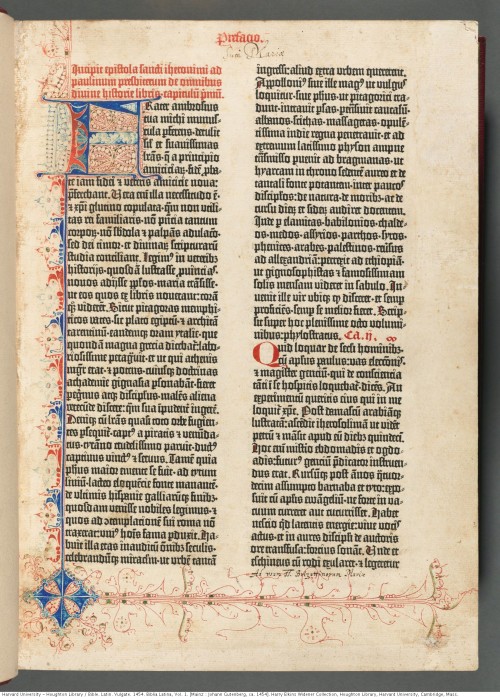 Prefacio.
Incipit epistola sancti iheronimi ad
paulinum presbiterum de omnibus
divine historie libris. capitulum p̄mū.
Frater ambrosius
tua michi munus-
cula ꝓferens · detulit
sił et suavissimas
lr̄as · q̄ a principio
amiciciaꝝ · fidē ꝓba-
te iam fidei ⁊ veteris amicicie nova:
ꝓferebant. Vera em̄ illa necessitudo ē ·
⁊ xp̄i glutino copulata: qm̄ non utili-
tas rei familiaris · nō p̄ncia tantum
corpoꝝ · nō s̄bdola ⁊ palpās adulacō:
sed dei timor · et divinaꝝ scripturarū
studia conciliant. Legim̄ in veterib̄
historijs · quosdā lustrasse ꝓvincias ·
novos adijsse ꝓlos · maria trāsisse ·
ut eos quos ex libris noverant: corā
q̄ʒ viderēt. Sicut pitagoras memphi-
ticos vates · sic plato egiptū · ⁊ architā
tarentinū · eandemq̄ʒ oram ytalie · que
quondā magna grecia dicebat̄: labo-
riosissime peragravit · et ut qui athenis
mgr̄ erat · ⁊ potens · cuiusq̄ʒ doctrinas
achademie gignasia ꝑsonabāt · fieret
peg̃nus atq̄ʒ discipulus · malēs aliena
verecūde discere: q̄m sua īpudent̄ ingerere.
Deniq̄ʒ cū lr̄as quasi toto orbe fugien-
tes ꝑsequit̄ · capt̄ a piratis ⁊ venūda-
tus · tyrāno crudelissimo paruit · duct̄
captivus vinct̄ ⁊ servus. Tamē quia
ph̄us · maior emente se fuit · ad tytum
liviū · lacteo eloquēcie fonte manantē ·
de ultimis hispanie galliarūq̄ʒ finib̄ ·
quosdam venisse nobiles legimus · ⁊
quos ad ꝯtemplacionē sui roma nō
traxerat: uni̅ hoīs fama ꝑduxit. Ha-
buit illa etas inauditū om̄ib̄ seculis ·
celebrandūq̄ʒ miraclm̄ · ut urbē tantā
ingressi: aliud extra urbem quererent.
Apollonī sive ille magꝰ ut vulgꝰ
loquitur · sive ph̄us · ut pitagorici tra-
dunt · intravit ꝑsas · ꝑtransivit caucasū ·
albanos · scithas · massagetas · opulē-
tissima indie regna penetravit · et ad
extremum latissimo physon ampne
trāsmisso ꝑvenit ad bragmanas · ut
hyarcam in throno sedentē aureo et de
tantali fonte potantem · inter paucos
discipłos · de natura · de moribꝫ · ac de
cursu dieꝝ et sideꝝ audiret docentem.
Inde ꝑ elamitas · babilonios · chalde-
os · medos · assyrios · parthos · syros ·
phenices · arabes · palestinos · reūsus
ad allexandriā: perrexit ad ethiopiā ·
ut gignosophistas ⁊ famosissimam
solis mensam videret in sabulo. In-
venit ille vir ubiq̄ʒ qd̄ disceret · et semꝑ
proficiēs · semꝑ se melior fieret. Scrip-
sit super hoc plenissime octo volumi-
nibus: phylostratus. Ca. ij.
Quid loquar de secłi hominibꝫ ·
cū apłus paulus · vas elecconis ·
⁊ magister gentiū · qui de consciencia
tāti ī se hospitis loquebat̄ · dicēs · An
experimentū queritis eius qui in me
loquit̄ xp̄c. Post damascū arabiāq̄ʒ
lustratā: ascēdit iherosolimā ut vidēt
petrū ⁊ māsit apud eū diebꝫ quindecī.
Hoc em̄ misterio ebdomadis et ogdo-
adis: futur̄ gentiū p̄dicator instruen-
dus erat. Rursūq̄ʒ post ānos q̄tuor-
decim assumpto barnaba et tyto: expo-
suit cū apłis evāgeliū · ne forte in va-
cuum curreret aut cucurrisset. Habet
nescio qd̄ latentis energie: vive vocis
actus · et in aures discipłi de auctoris
ore transfusa: forcius sonat̄. Unde et
eschines cū rodi exularet · ⁊ legeretur
Harvard University - Houghton Library / Bible. Latin. Vulgate. 1454. Biblia Latina, Vol. 1. [Mainz : Johann Gutenberg, ca. 1454]. Harry Elkins Widener Collection, Houghton Library, Harvard University, Cambridge, Mass.